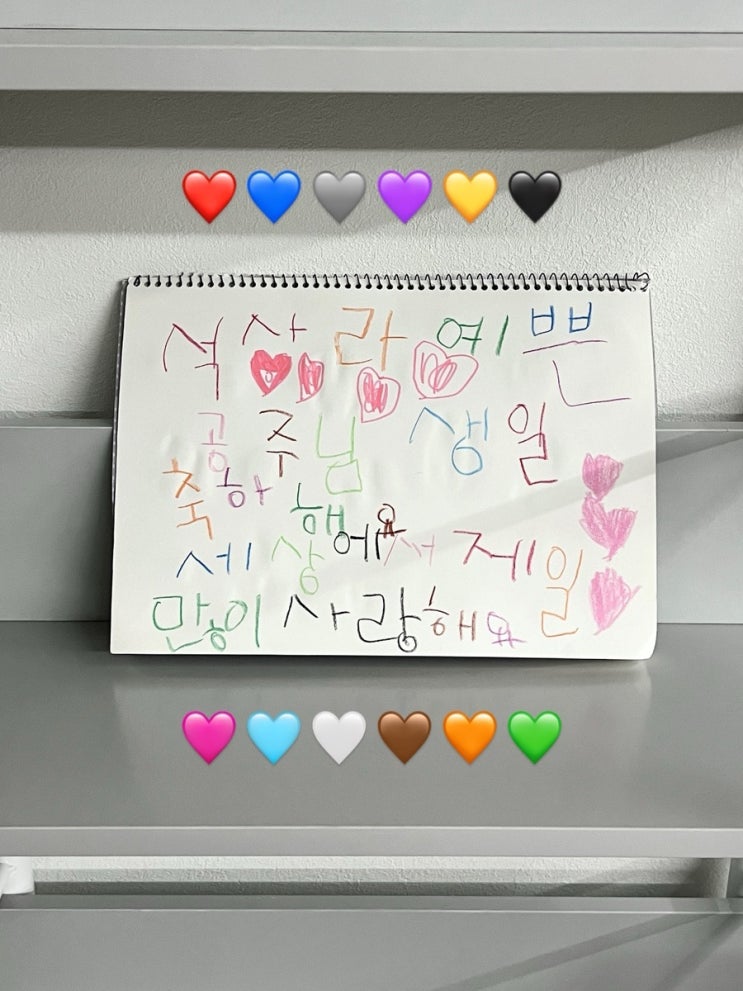 석사라 예쁜
공주님 생일
축하해요
세상에서 제일
만이 사랑해요